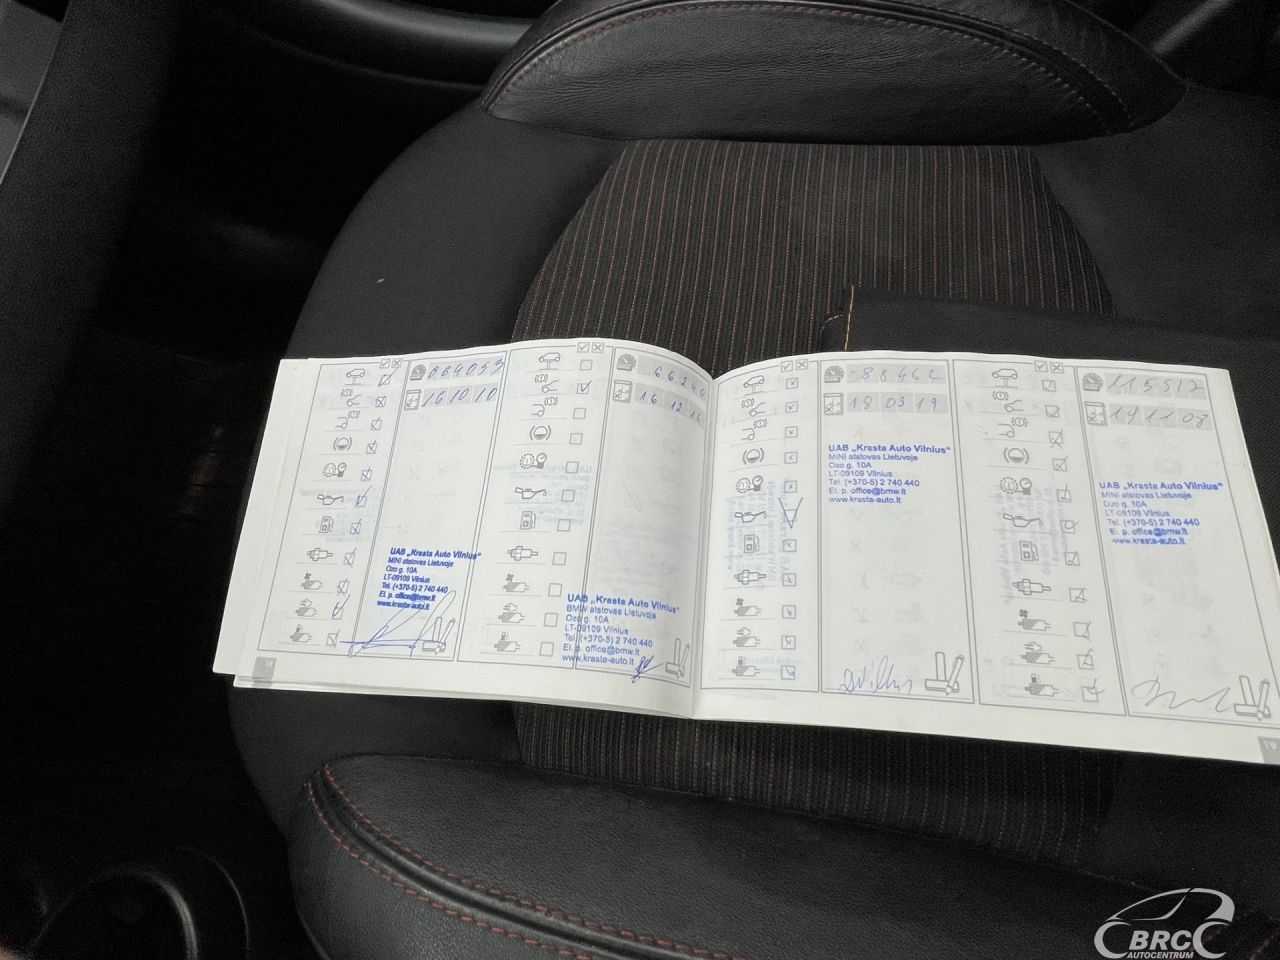 064053
16 10 10
UAB „Krasta Auto Vilnius“
MINI atstovas Lietuvoje
Ozo g. 10A
LT-09109 Vilnius
Tel. (+370-5) 2 740 440
El. p. office@bmw.lt
www.krasta-auto.lt
18
66240
16 12 14
UAB „Krasta Auto Vilnius“
BMW atstovas Lietuvoje
Ozo g. 10A
LT-09109 Vilnius
Tel. (+370-5) 2 740 440
El. p. office@bmw.lt
www.krasta-auto.lt
-88462
18 03 19
UAB „Krasta Auto Vilnius“
MINI atstovas Lietuvoje
Ozo g. 10A
LT-09109 Vilnius
Tel. (+370-5) 2 740 440
El. p. office@bmw.lt
www.krasta-auto.lt
115517
19 11 08
UAB „Krasta Auto Vilnius“
MINI atstovas Lietuvoje
Ozo g. 10A
LT-09109 Vilnius
Tel. (+370-5) 2 740 440
El. p. office@bmw.lt
www.krasta-auto.lt
19
BRC
AUTOCENTRUM